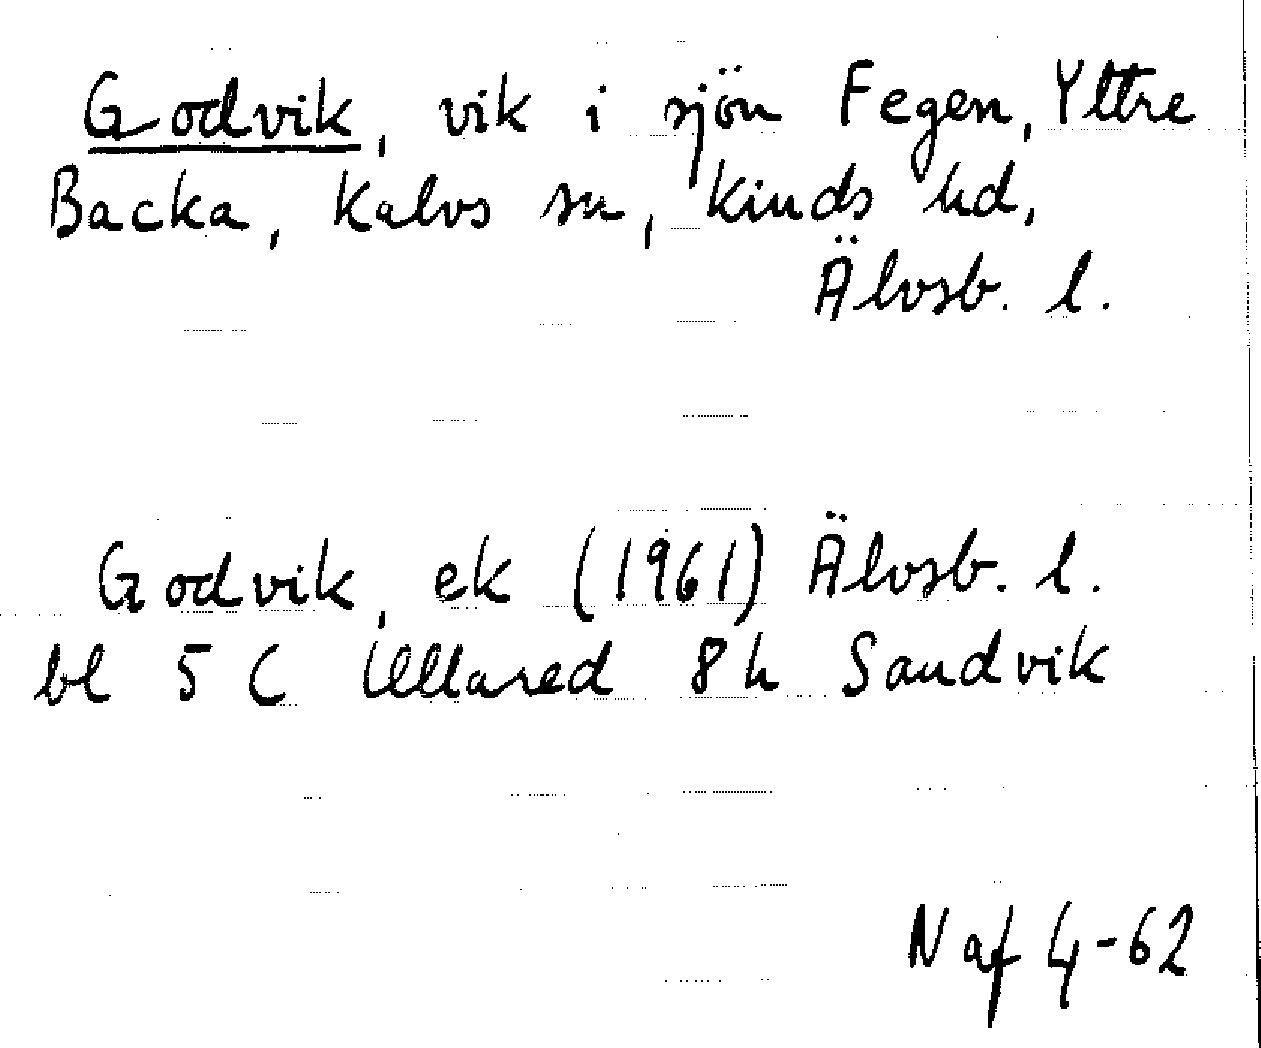 Godvik, vik i sjön Fegen, Yttre
Backa, Kalvs sn, Kinds hd,
Älvsb. l.
Godvik, ek (1961) Älvsb. l.
bl 5 C Ullared 8h Sandvik
Naf 4-62